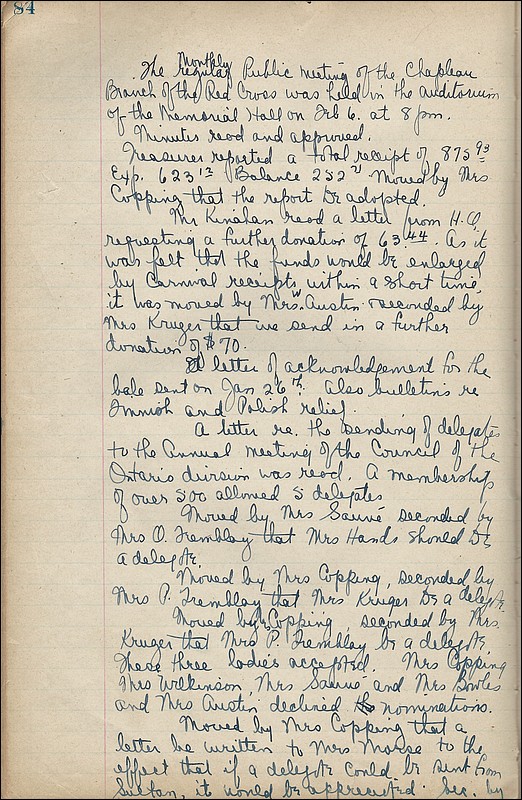 84
Monthly
The regular Public meeting of the Chapleau
Branch of the Red Cross was held in the auditorium
of the Memorial Hall on Feb 6. at 8 pm.
Minutes read and approved.
Treasurer reported a total receipt of 875 93
Exp. 623 Balance 252 Moved by Mrs
Copping that the report be adopted.
Mr Kinahan read a letter from H.Q.
requesting a further donation of 63 44. As it
was felt that the funds would be enlarged
by Carnival receipts within a short time,
it was moved by Mrs W. Austin seconded by
Mrs Kruger that we send in a further
donation of $70.
A letter of acknowledgement for the
bale sent on Jan 26th. Also bulletins re
Finnish and Polish relief.
A letter re. the sending of delegates
to the Annual Meeting of the Council of the
Ontario division was read. A membership
of over 500 allowed 5 delegates
Moved by Mrs Sauvé seconded by
Mrs O. Tremblay that Mrs Hands should be
a delegate.
Moved by Mrs Copping, seconded by
Mrs P. Tremblay that Mrs Kruger be a delegate
Moved by Mrs Copping seconded by Mrs.
Kruger that Mrs P. Tremblay be a delegate.
These three ladies accepted. Mrs Copping
Mrs Wilkinson, Mrs Sauvé and Mrs Bowles
and Mrs Austin declined nominations.
Moved by Mrs Copping that a
letter be written to Mrs Morse to the
effect that if a delegate could be sent from
Sultan, it would be appreciated. Sec. by